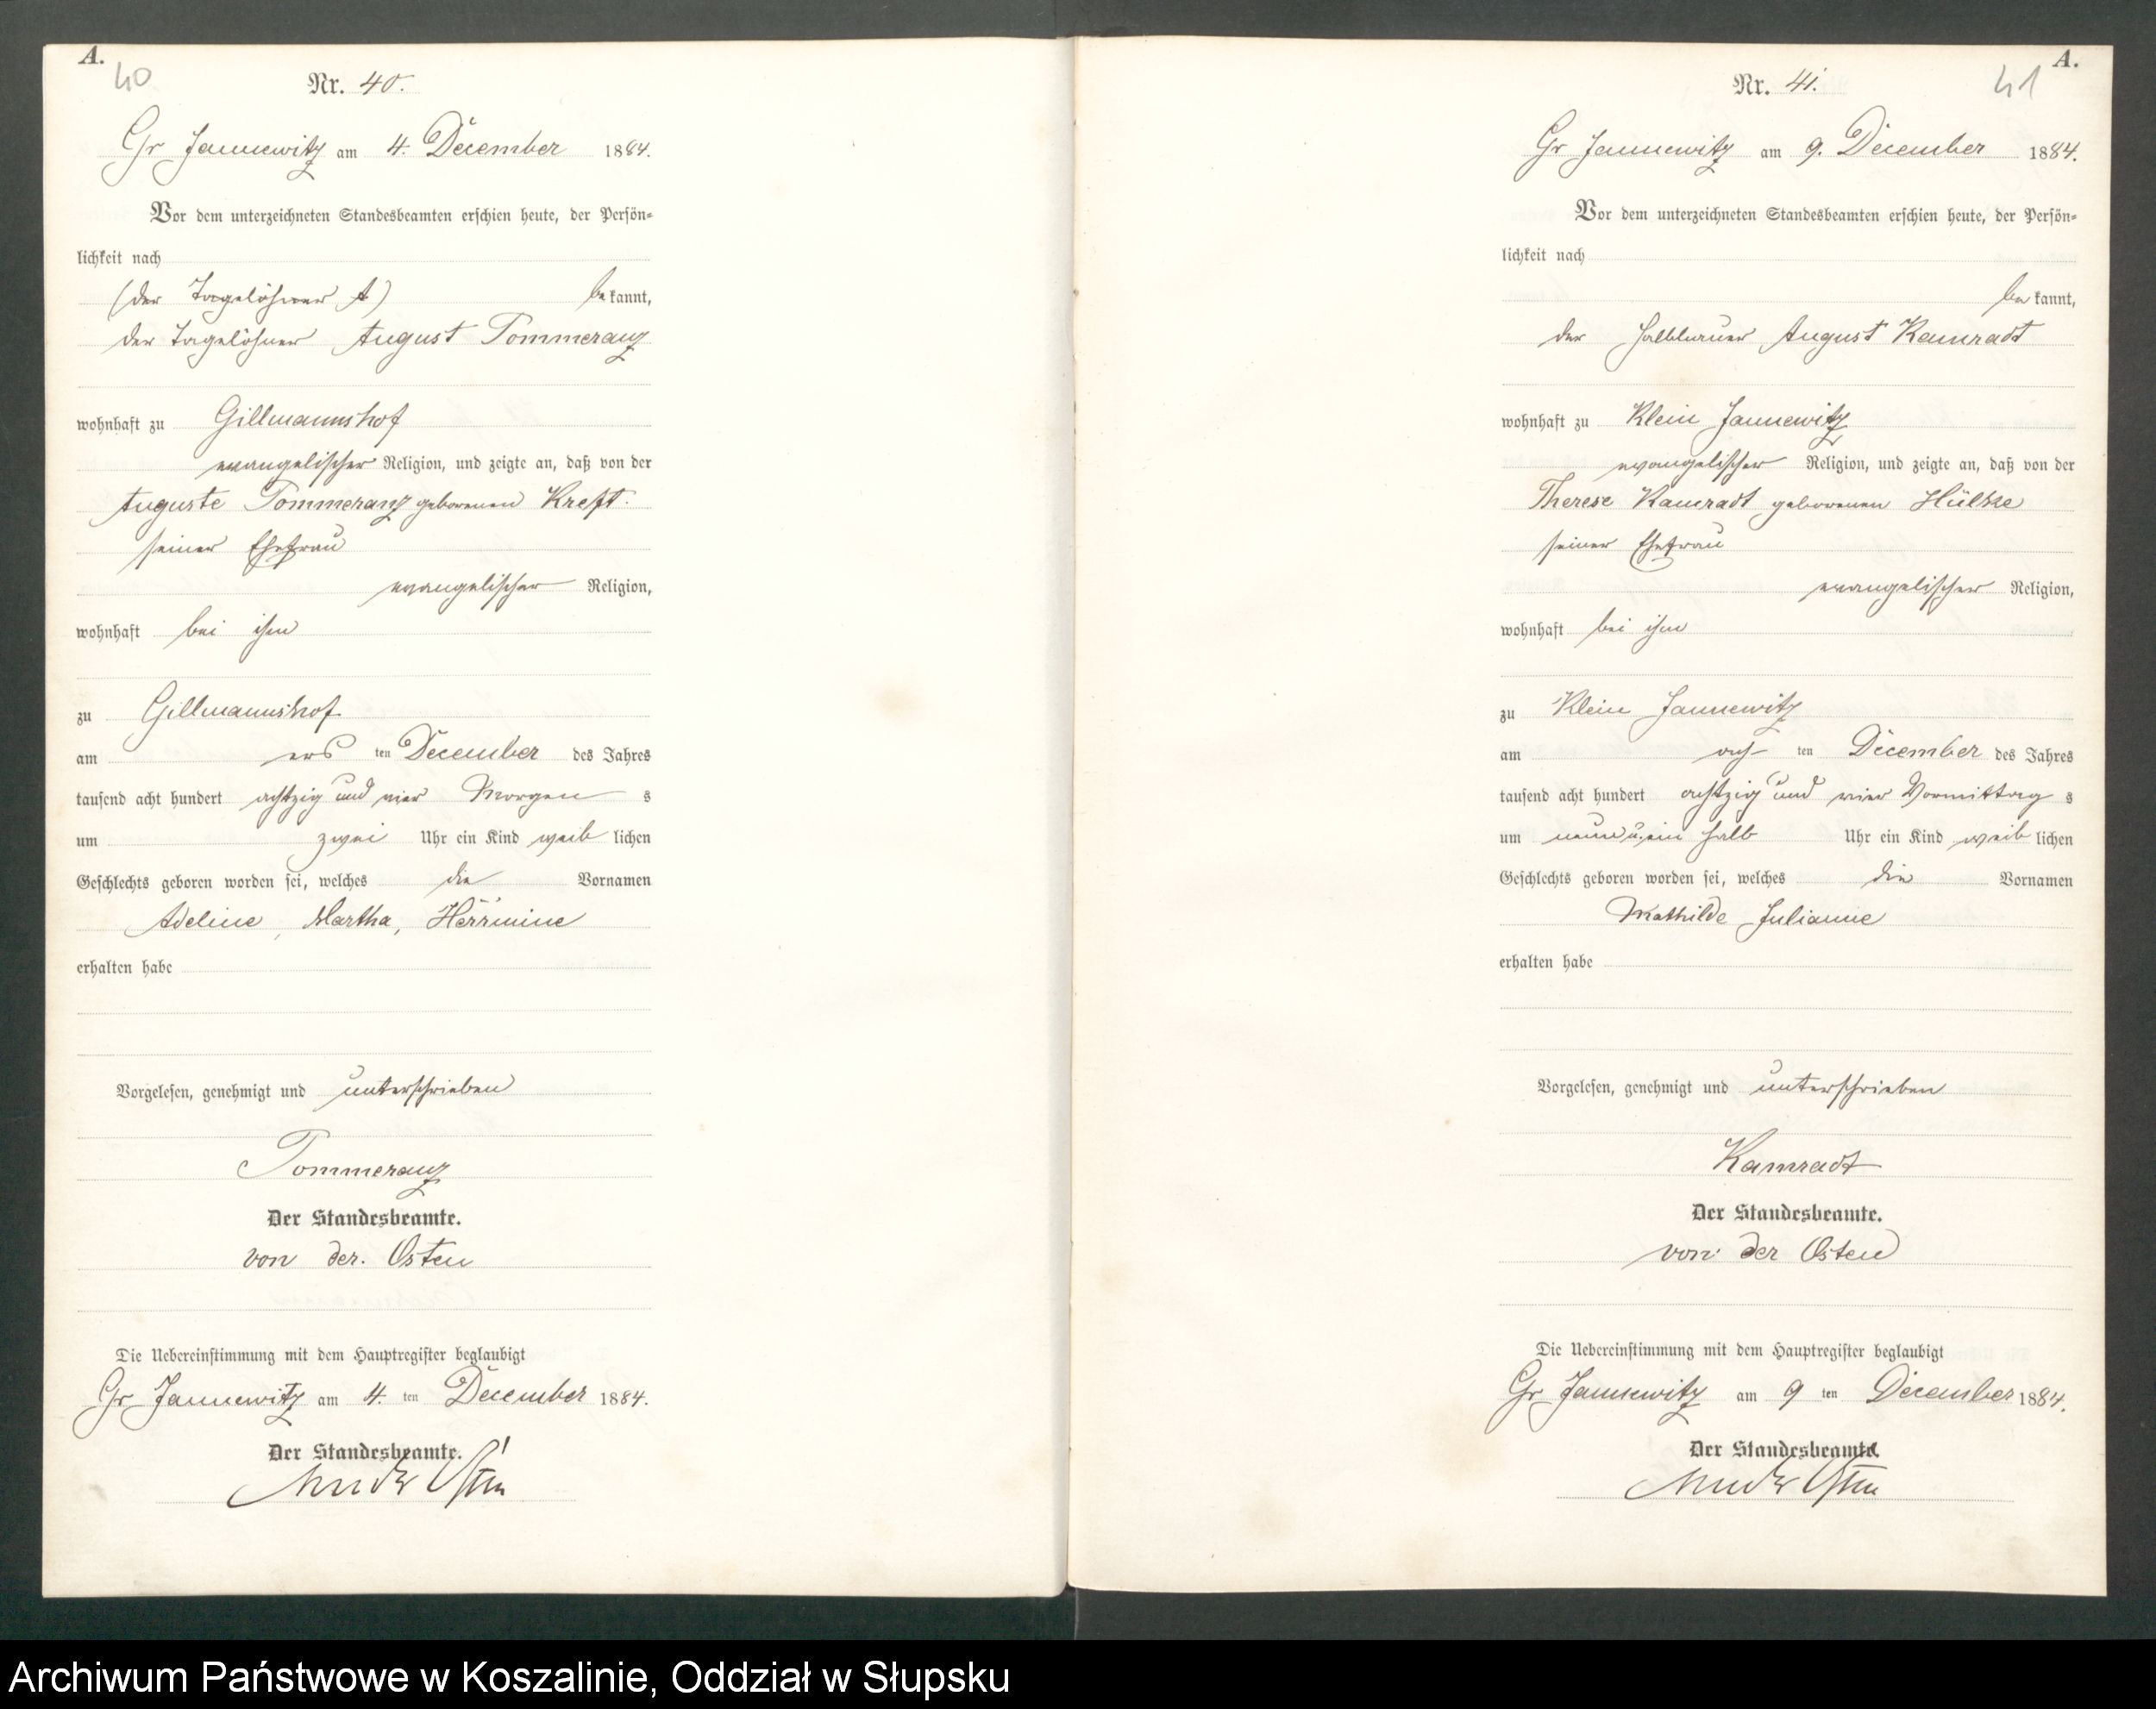 A.
40
Nr. 40.
Gr Jannewitz am 4. December 1884.
Vor dem unterzeichneten Standesbeamten erschien heute, der Persön-
lichkeit nach
(der Tagelöhner A) bekannt,
der Tagelöhner August Pommeranz
wohnhaft zu Gillmannshof
evangelischer Religion, und zeigte an, daß von der
Auguste Pommeranz geborenen Kreft
seiner Ehefrau
evangelischer Religion,
wohnhaft bei ihm
zu Gillmannshof
am ers ten December des Jahres
tausend acht hundert achtzig und vier Morgen s
um zwei Uhr ein Kind weib lichen
Geschlechts geboren worden sei, welches die Vornamen
Adeline, Martha, Hermine
erhalten habe
Vorgelesen, genehmigt und unterschrieben
Pommeranz
Der Standesbeamte.
von der Osten
Die Uebereinstimmung mit dem Hauptregister beglaubigt
Gr Jannewitz am 4. ten December 1884.
Der Standesbeamte.
von der Osten
A.
41
Nr. 41.
Gr Jannewitz am 9. December 1884.
Vor dem unterzeichneten Standesbeamten erschien heute, der Persön-
lichkeit nach
be kannt,
der Halbbauer August Kamradt
wohnhaft zu Klein Jannewitz
evangelischer Religion, und zeigte an, daß von der
Therese Kamradt geborenen Hülske
seiner Ehefrau
evangelischer Religion,
wohnhaft bei ihm
zu Klein Jannewitz
am ach ten December des Jahres
tausend acht hundert achtzig und vier Vormittag s
um neun u. ein halb Uhr ein Kind weib lichen
Geschlechts geboren worden sei, welches die Vornamen
Mathilde Julianne
erhalten habe
Vorgelesen, genehmigt und unterschrieben
Kamradt
Der Standesbeamte.
von der Osten
Die Uebereinstimmung mit dem Hauptregister beglaubigt
Gr Jannewitz am 9 ten December 1884.
Der Standesbeamte.
von der Osten
Archiwum Państwowe w Koszalinie, Oddział w Słupsku